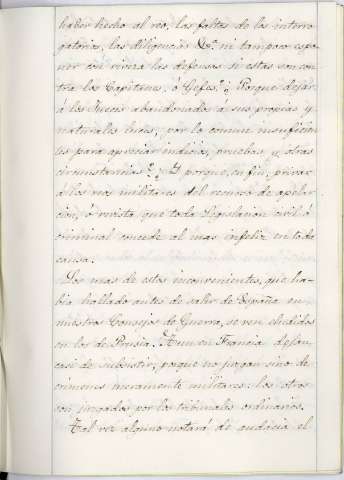 haber hecho al reo, las faltas de los interro-
gatorios, las diligencias &ª ni tampoco expo-
ner con viveza las defensas si estas son con-
tra los Capitanes, ó Gefes? ¿Porque dejar
á los Jueces abandonados á sus propias y
naturales luces, por lo comun insuficien-
tes para apreciar indicios, pruebas y otras
circunstancias? ¿Y porque, en fin, privar
á los reos militares del recurso de apela-
cion, ó revista que toda legislacion civil ó
criminal concede al mas infeliz en toda
causa.
Los mas de estos inconvenientes, que ha-
bia hallado antes de salir de España en
nuestros Consejos de Guerra, se ven eludidos
en los de Prusia. Aun en Francia dejan
casi de subsistir; porque no juzgan sino de
crimenes meramente militares: los otros
son juzgados por los tribunales ordinarios.
Tal vez alguno notará de audacia el